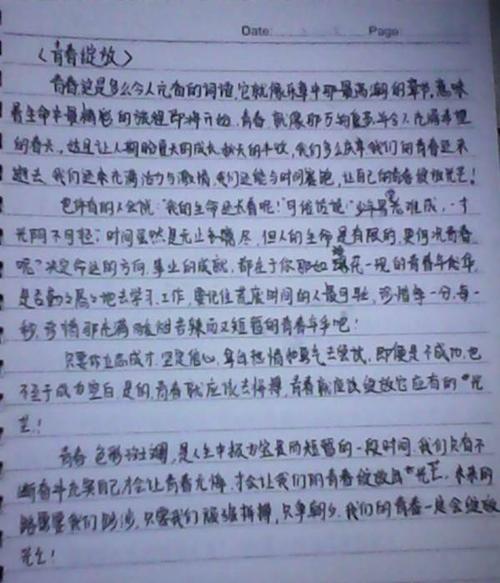 Date: Page:
《青春绽放》
青春这是多么令人充奋的词语,它就像乐章中那最高潮的章节,意味
着生命中最精彩的旅程即将开始.青春就像那万物复苏令人充满希望
的春天,这里让人期盼夏天的成长秋天的丰收,我们多么庆幸我们的青春还未
逝去.我们还未充满活力与激情,我们还能与时间赛跑,让自己的青春绽放光芒!
也许有的人会说:"我的生命还长着呢!"可俗话说:"少年易老难成,一寸
光阴不可轻;时间虽然是无止无尽,但人的生命是有限的,更何况青春
呢?"决定命运的方向,事业的成就,都在于你那如昙花一现的青春年华,
是否勤勤地去学习,工作,要记住荒废时间的人最可耻,珍惜每一分,每一
秒,珍惜那充满酸甜苦辣而又短暂的青春年华吧!
只要你立志成才,坚定信心,拿自热情和勇气去绽放,即便是不成功,也
不至于成为空白.是的,青春就应该去拼搏,青春就应该绽放它应有的"光
芒!
青春色彩斑斓,是人生中极为宝贵而短暂的一段时间.我们只有不
断奋斗充实自己才会让青春无悔,才会让我们的青春绽放出"光芒,未来的
路需要我们跋涉,只要我们顽强拼搏,只争朝夕.我们的青春一定会绽放
光芒!